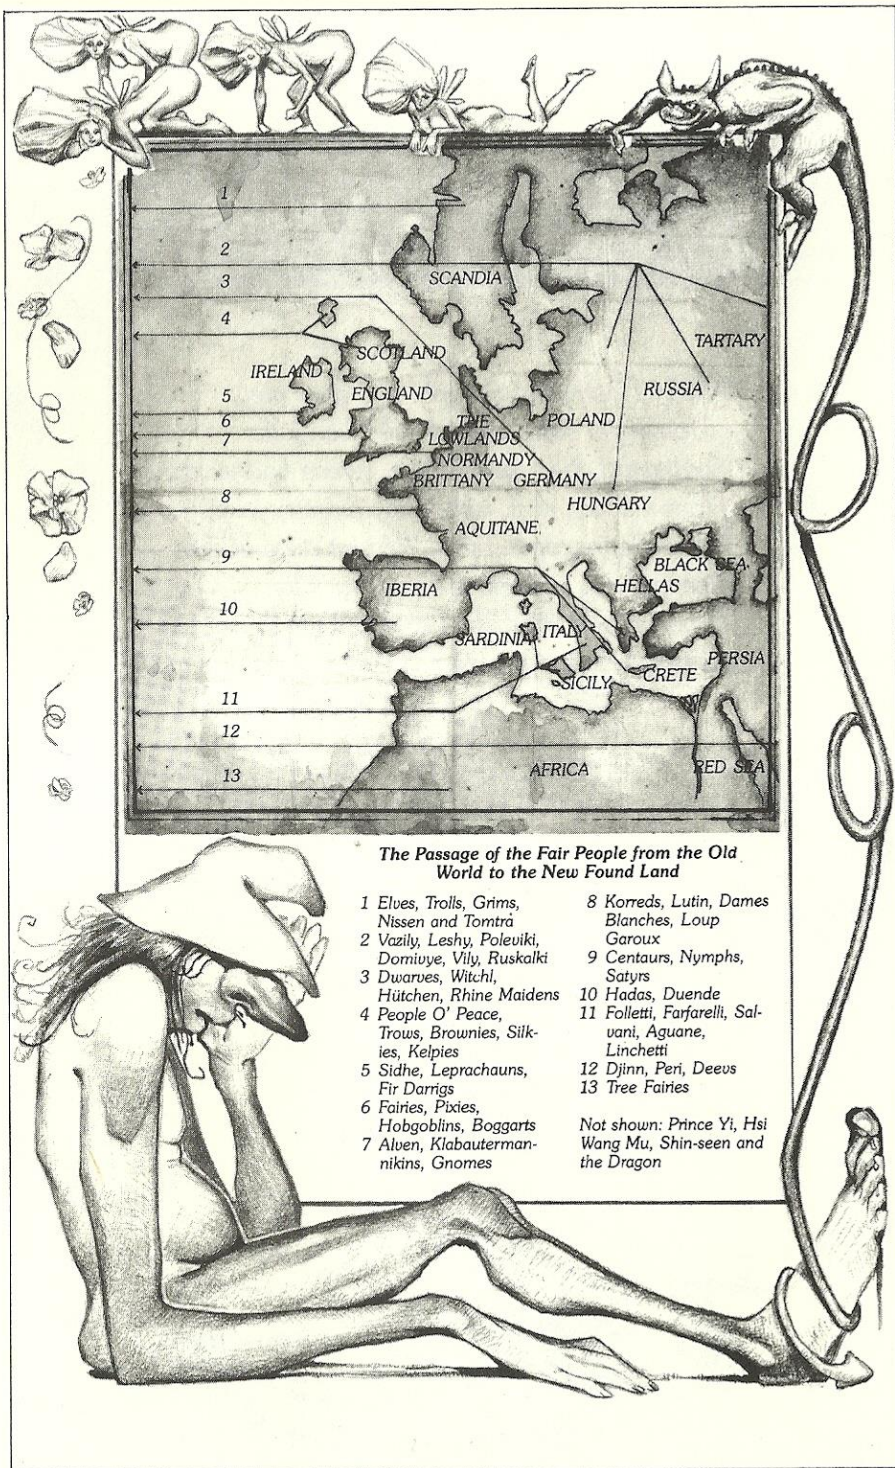 1
2
SCANDIA
3
4
TARTARY
SCOTLAND
IRELAND
RUSSIA
5
ENGLAND
6
THE
POLAND
7
LOWLANDS
NORMANDY
BRITTANY
GERMANY
8
HUNGARY
AQUITANE
9
BLACK SEA
IBERIA
HELLAS
10
SARDINIA
ITALY
PERSIA
SICILY
CRETE
11
12
AFRICA
RED SEA
13
The Passage of the Fair People from the Old
World to the New Found Land
1 Elves, Trolls, Grims,
Nissen and Tomtrà
2 Vazily, Leshy, Poleviki,
Domivye, Vily, Ruskalki
3 Dwarves, Witchl,
Hütchen, Rhine Maidens
4 People O' Peace,
Trows, Brownies, Silk-
ies, Kelpies
5 Sidhe, Leprachauns,
Fir Darrigs
6 Fairies, Pixies,
Hobgoblins, Boggarts
7 Alven, Klabauterman-
nikins, Gnomes
8 Korreds, Lutin, Dames
Blanches, Loup
Garoux
9 Centaurs, Nymphs,
Satyrs
10 Hadas, Duende
11 Folletti, Farfarelli, Sal-
vani, Aguane,
Linchetti
12 Djinn, Peri, Deevs
13 Tree Fairies
Not shown: Prince Yi, Hsi
Wang Mu, Shin-seen and
the Dragon